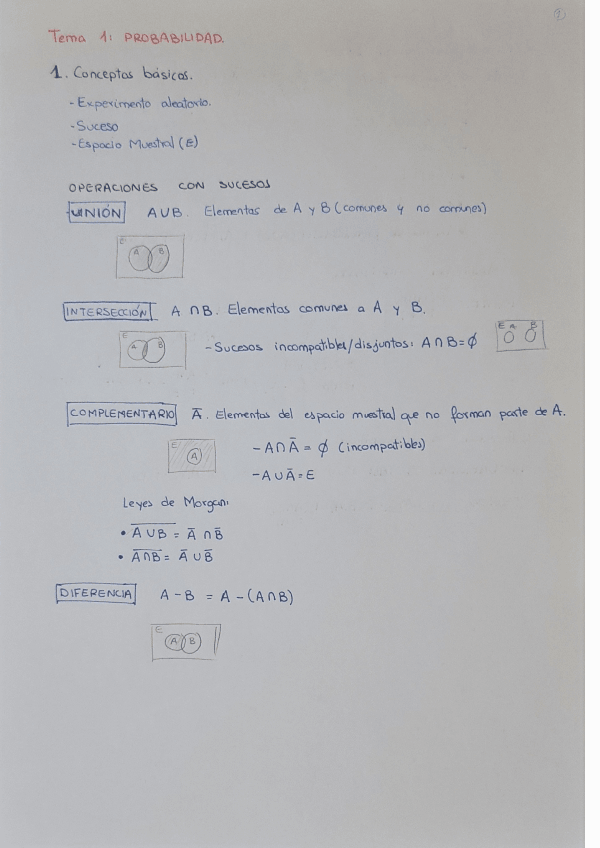 1
Tema 1: PROBABILIDAD.
1. Conceptos básicos.
- Experimento aleatorio.
- Suceso
- Espacio Muestral (E)
OPERACIONES CON SUCESOS
UNIÓN A∪B. Elementos de A y B (comunes y no comunes)
E A B
INTERSECCIÓN A ∩ B. Elementos comunes a A y B.
E A B
- Sucesos incompatibles/disjuntos: A∩B=∅
E A B
COMPLEMENTARIO Ā. Elementos del espacio muestral que no forman parte de A.
E A
- A∩Ā = ∅ (incompatibles)
- A∪Ā = E
Leyes de Morgan:
• A̅ ̅∪̅ ̅B̅ = Ā ∩ B̄
• A̅∩̅B̅ = Ā ∪ B̄
DIFERENCIA A - B = A - (A∩B)
E A B